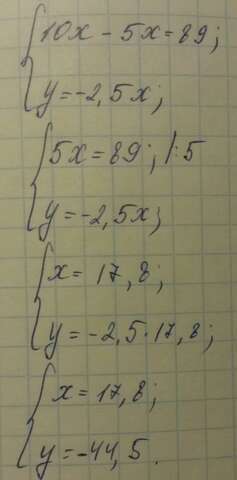 10x - 5x = 89;
y = -2,5x;
5x = 89; |:5
y = -2,5x;
x = 17,8;
y = -2,5·17,8;
x = 17,8;
y = -44,5.